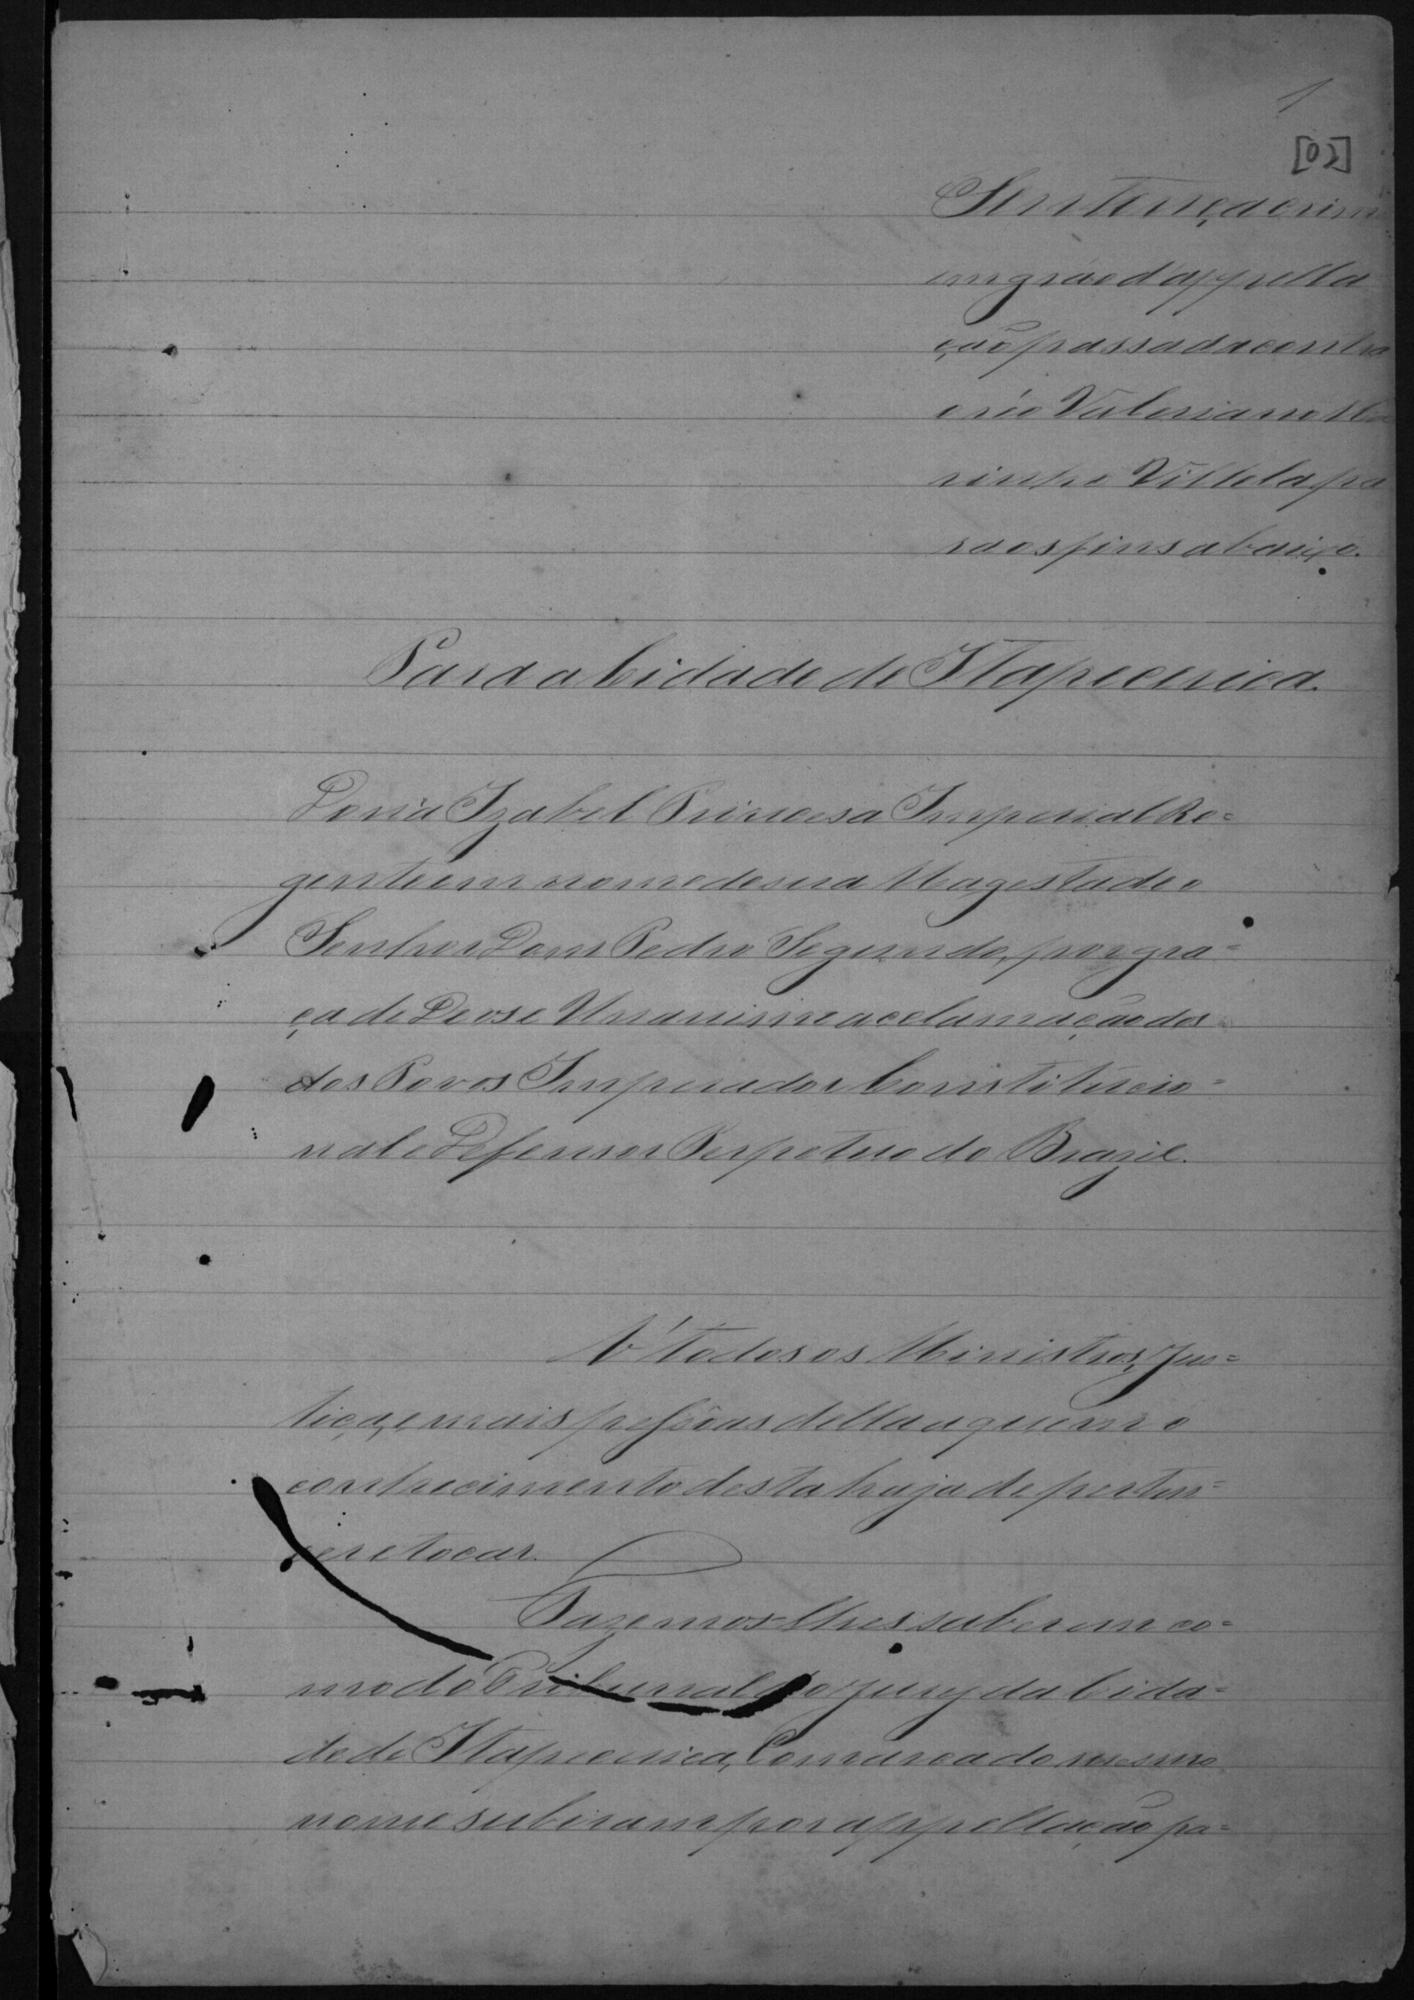 1
[02]
Sentença crim
em gráo d'appella
ção passada contra
o réo Valeriano Ma
rinho Villela pa
ra os fins abaixo.
Para a Cidade de Itapecerica.
Dona Izabel Princesa Imperial Re=
gente em nome de sua Magestade o
Senhor Dom Pedro Segundo, por gra=
ça de Deos e Unanime acclamação dos
dos Povos Imperador Constitucio=
nal e Defensor Perpetuo do Brazil.
A' todos os Ministros, Jus=
tiça, e mais pessôas della a quem o
conhecimento desta haja de perten=
cer e tocar.
Fazemos-lhes saber em co=
mo do Tribunal do Jury da Cida=
de de Itapecerica, Comarca do mesmo
nome subiram por appellação pa=